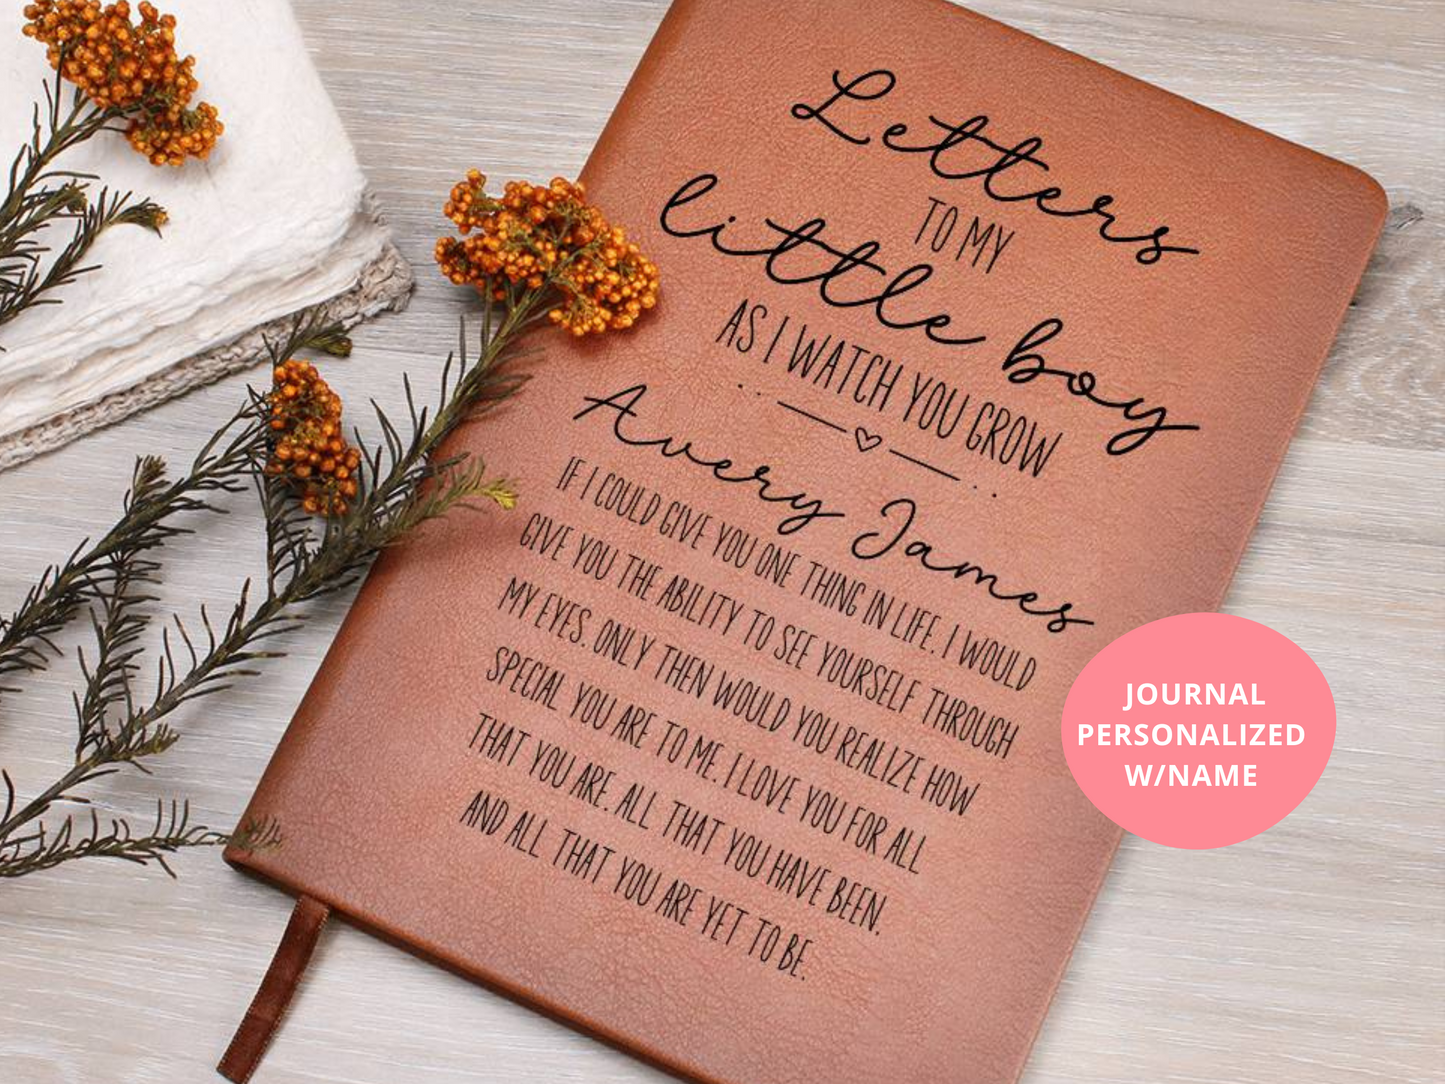 Letters
TO MY
little boy
AS I WATCH YOU GROW
Avery James
IF I COULD GIVE YOU ONE THING IN LIFE. I WOULD
GIVE YOU THE ABILITY TO SEE YOURSELF THROUGH
MY EYES. ONLY THEN WOULD YOU REALIZE HOW
SPECIAL YOU ARE TO ME. I LOVE YOU FOR ALL
THAT YOU ARE. ALL THAT YOU HAVE BEEN.
AND ALL THAT YOU ARE YET TO BE.
JOURNAL
PERSONALIZED
W/NAME